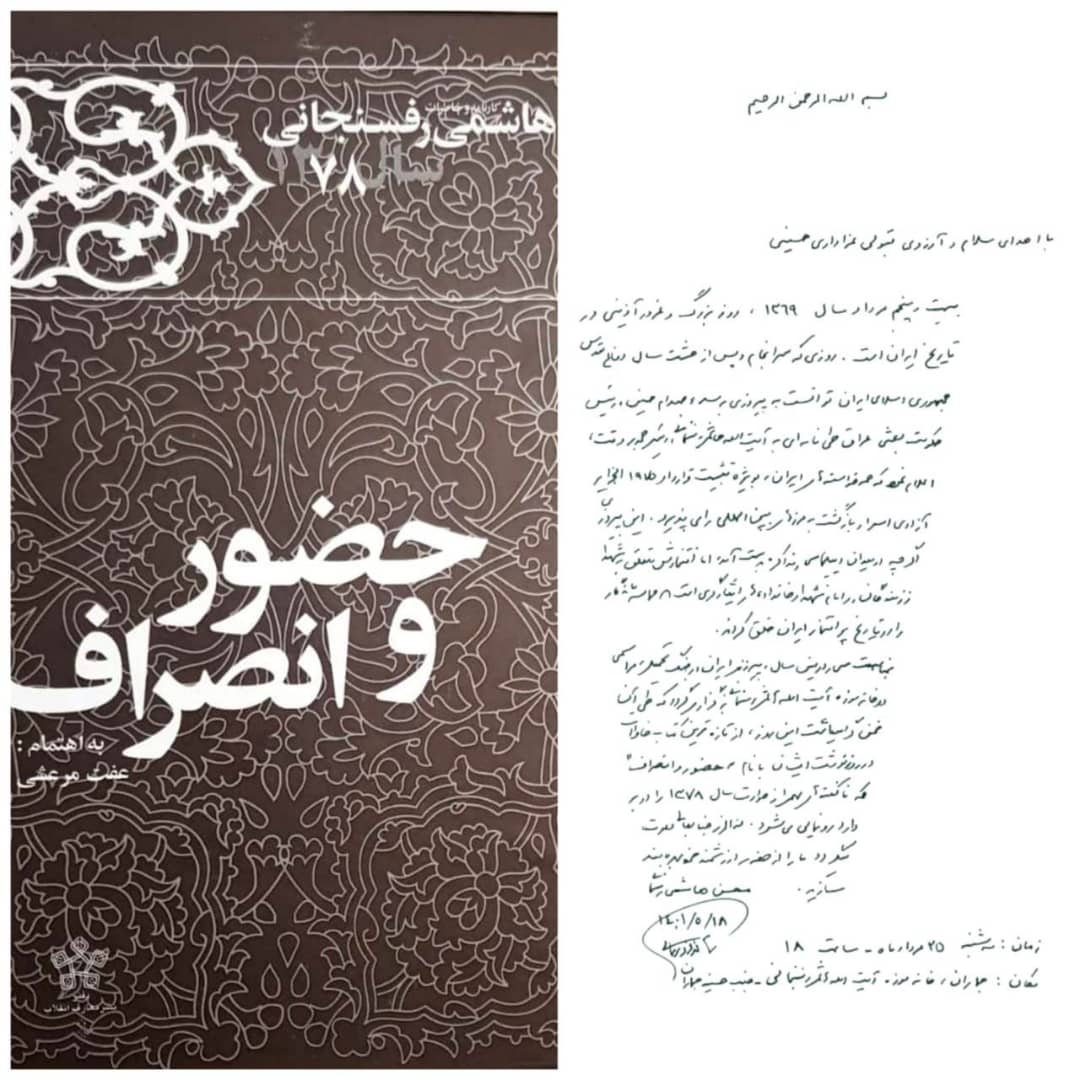 کارنامه و خاطرات
هاشمی رفسنجانی
سال ۱۳۷۸
حضور
و انصراف
به اهتمام :
عفت مرعشی
دفتر
نشر معارف انقلاب
بسم الله الرحمن الرحیم
با اهدای سلام و آرزوی قبولی عزاداری حسینی
بیست و پنجم مرداد سال ۱۳۶۹ ، روز بزرگ و غرورآفرینی در
تاریخ ایران است . روزی که سرانجام و پس از هشت سال دفاع مقدس
جمهوری اسلامی ایران توانست به پیروزی برسد و صدام حسین ، رئیس
حکومت بعثی عراق طی نامه‌ای به آیت الله هاشمی رفسنجانی ، رئیس جمهور وقت ،
اعلام نمود که همه خواسته‌های ایران ، بویژه تثبیت قرارداد ۱۹۷۵ الجزایر
آزادی اسرا و بازگشت به مرزهای بین المللی را می پذیرد . این پیروزی
گرچه در میدان دیپلماسی و مذاکره بدست آمد ، اما افتخارش متعلق به شهدا
رزمندگان ، امام شهدا و خانواده‌های ایثارگری است ۸ حماسه ماندگار
را در تاریخ پر افتخار ایران خلق کردند .
بمناسبت سی و دومین سال پیروزی ایران در جنگ تحمیلی ، مراسمی
در خانه موزه آیت الله هاشمی رفسنجانی برگزار می گردد که طی آن
ضمن گرامیداشت این روز ، از تازه ترین کتاب خاطرات
روزنوشت ایشان با نام " حضور و انصراف "
که ناگفته‌های مهم از حوادث سال ۱۳۷۸ را در بر
دارد رونمایی می شود . لذا از جنابعالی دعوت
می گردد ما را از حضور ارزشمند خود بهره‌مند
سازید . محسن هاشمی رفسنجانی
۱۴۰۱/۵/۱۸
زمان : سه شنبه ۲۵ مردادماه - ساعت ۱۸
مکان : جماران ، خانه موزه آیت الله هاشمی رفسنجانی - جنب حسینیه جماران